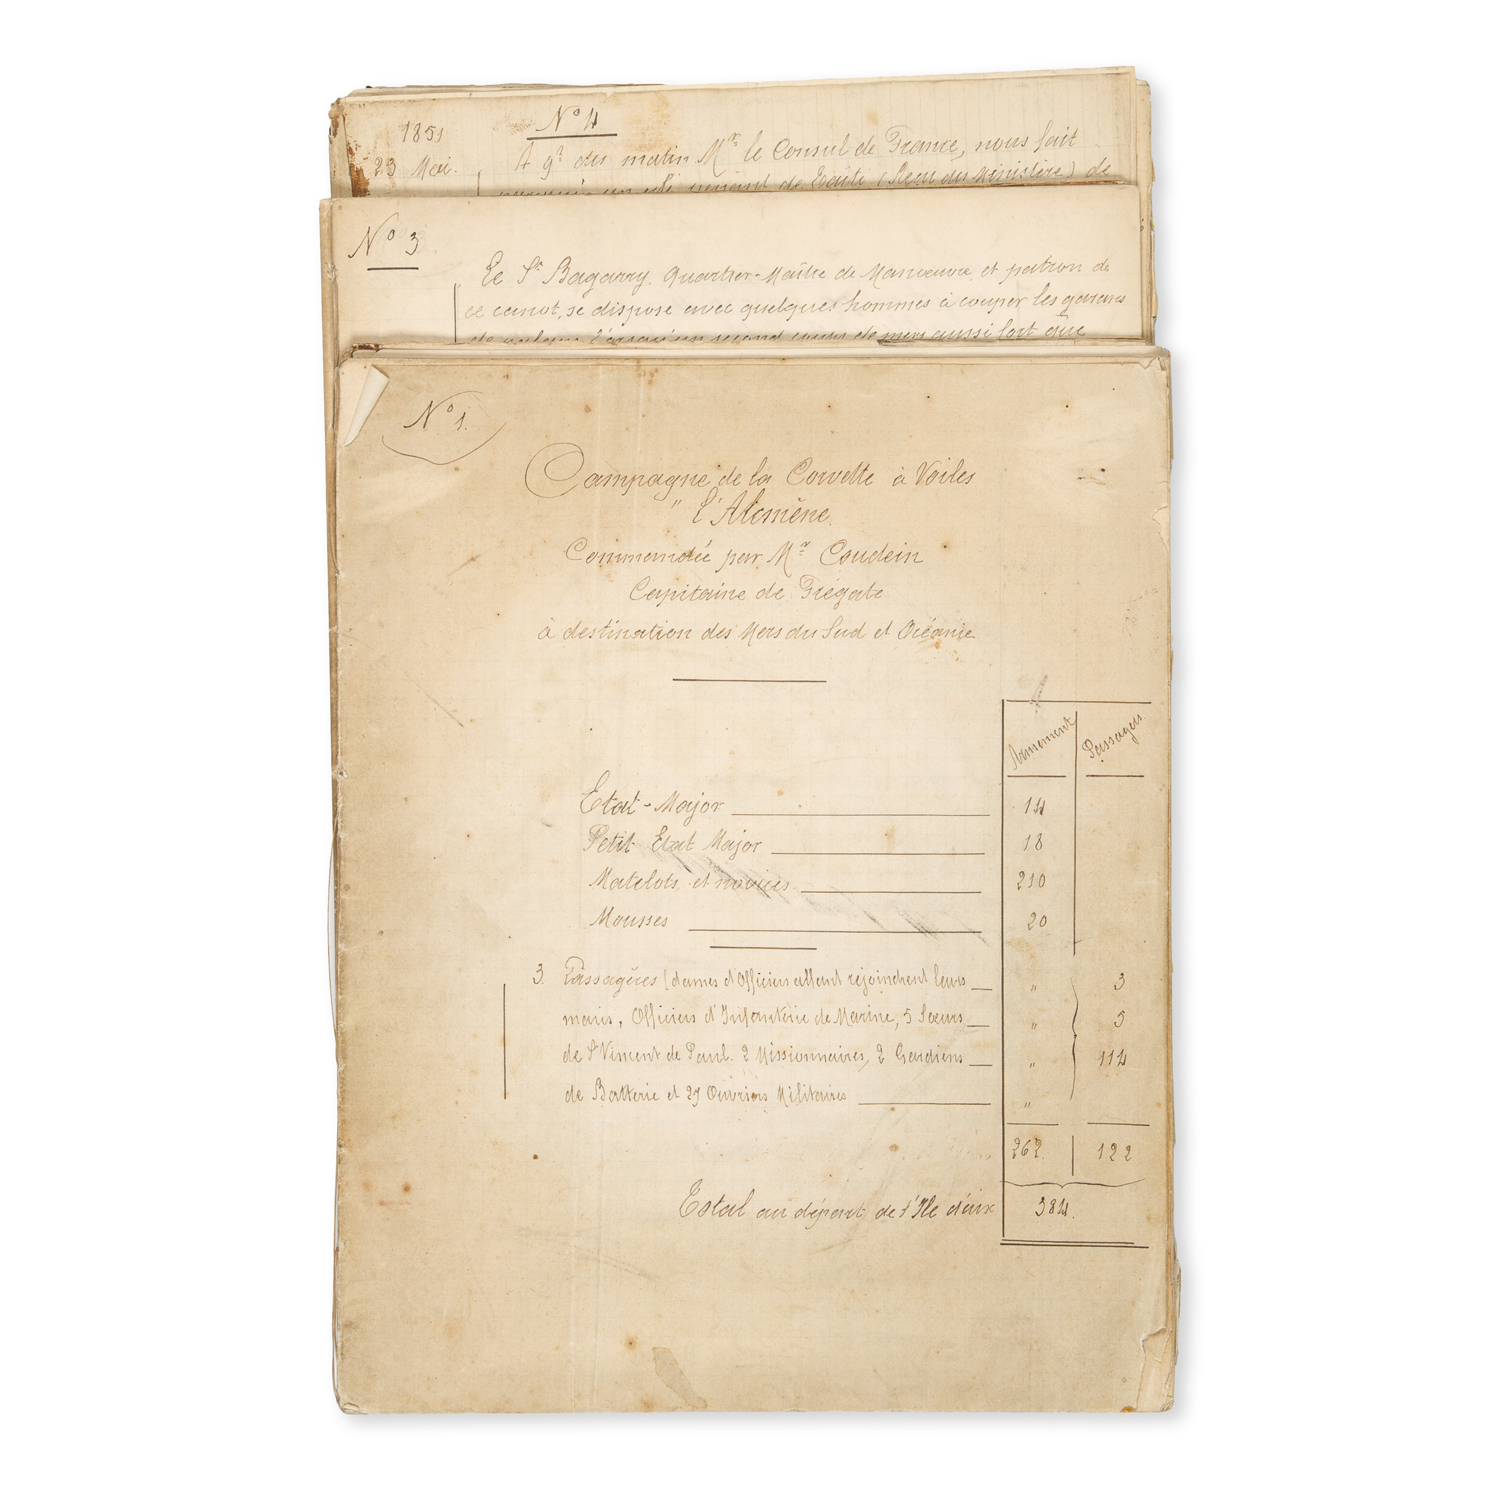 1851
Nº 4
23 Mai.
A 9h du matin Mr le Consul de France, nous fait
de Taïti (Reçu du Ministère) de
Nº 3
Le Sr Bagarry Quartier-Maître de Manœuvre et patron de
ce canot, se dispose avec quelques hommes à couper les garans
un second coup de mer aussi fort que
Nº 1.
Campagne de la Corvette à Voiles
" l'Alcmène
Commandée par Mr Coudein
Capitaine de Frégate
à destination des Mers du Sud et Océanie
Armement Passagers
Etat-Major 14
Petit Etat Major 18
Matelots et novices 210
Mousses 20
3 Passagères (dames d'Officiers allant rejoindrent leurs " 3
maris, Officiers d'Infanterie de Marine, 5 Sœurs " 5
de St Vincent de Paul. 2 Missionnaires, 2 Gardiens " 114
de Batterie et 27 Ouvriers Militaires "
262 122
Total au départ de l'Ile d'aix 384.